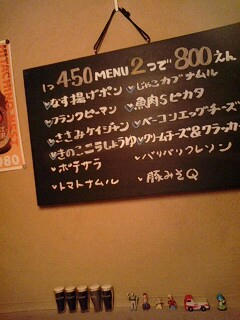 1つ 450 MENU 2つで 800えん
なす揚げポン
フランクピーマン
ささみケイジャン
きのこニラしょうゆ
ポテサラ
トマトナムル
じゃこカブナムル
魚肉Sピカタ
ベーコンエッグチーズ
クリームチーズ&クラッカー
バリバリクレソン
豚みそQ